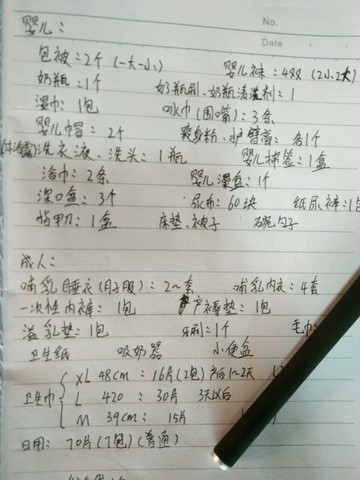 No.
Date
婴儿：
包被：2个（一大一小） 婴儿袜：4双（2小2大）
奶瓶：1个 奶瓶刷、奶瓶清洗剂：1
湿巾：1包 口水巾（围嘴）：3条
婴儿帽：2个 爽身粉、护臀膏：各1个
洗衣液、洗头：1瓶 婴儿棉签：1盒
浴巾：2条 婴儿澡盆：1个
深口盆：3个 尿布：60块 纸尿裤：1包
指甲刀：1盒 床垫、被子 碗勺子
成人：
哺乳睡衣（月子服）：2~套 哺乳内衣：4套
一次性内裤：1包 产褥垫：1包
溢乳垫：1包 牙刷：1个 毛巾
卫生纸 吸奶器 小便盆
卫生巾
XL 48cm：16片（2包）产后1~2天
L 420：30片 3天以后
M 39cm：15片
日用：70片（7包）（普通）